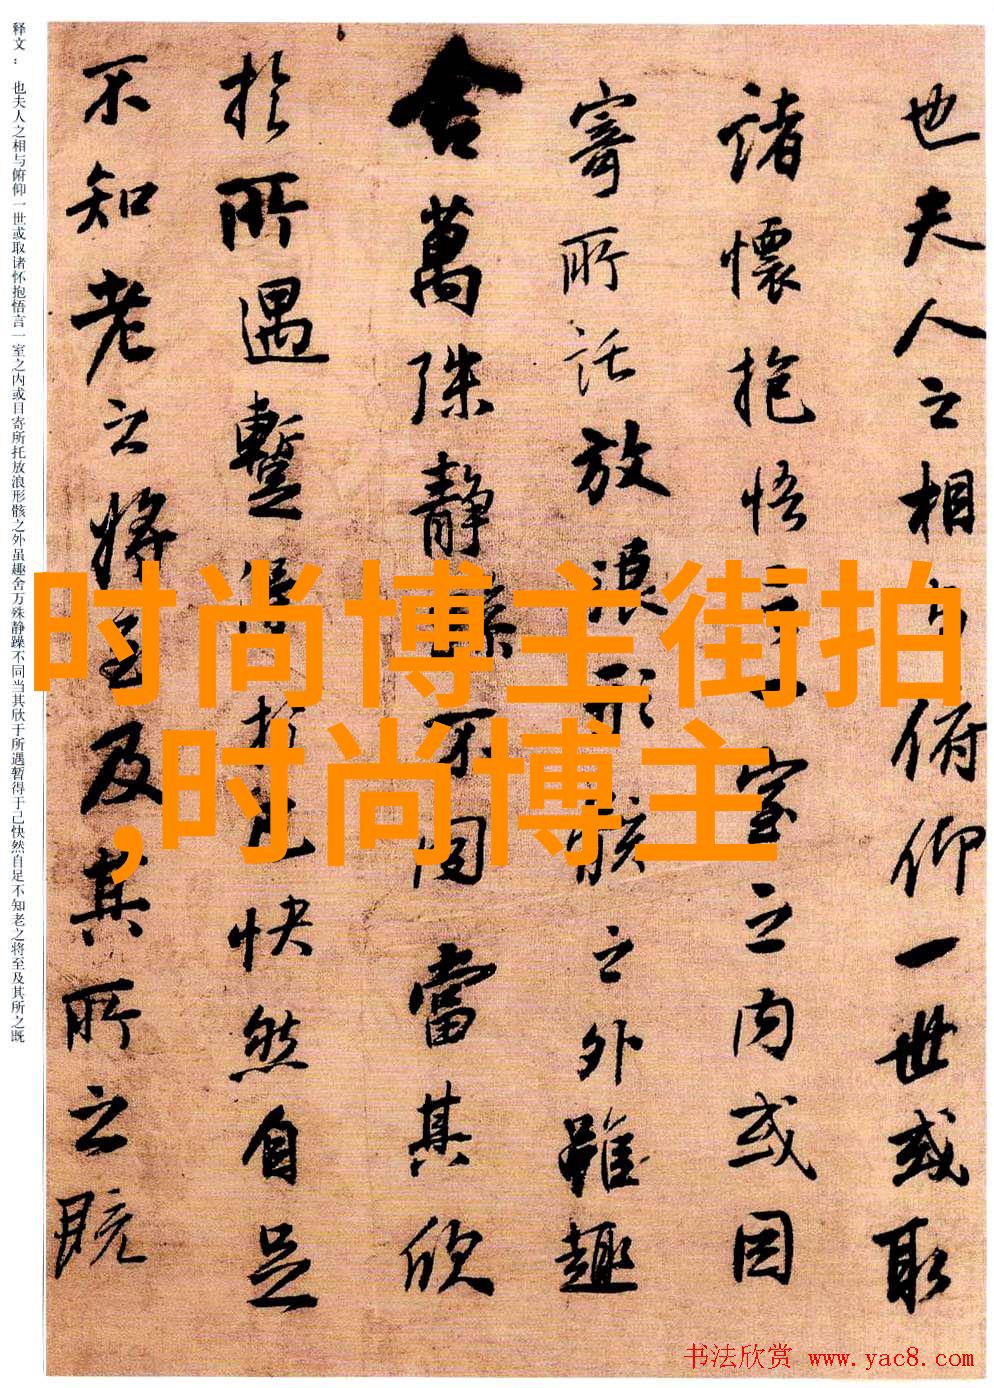 释文： 也夫人之相与俯仰一世或取诸怀抱悟言一室之内或目寄所托放浪形骸之外虽趣舍万殊静躁不同当其欣于所遇暂得于己快然自足不知老之将至及其所之既
也夫人之相与俯仰一世或取
諸懷抱悟言一室之内或因
寄所託放浪形骸之外雖趣
舍萬殊静躁不同當其欣
於所遇暫得於己快然自足
不知老之将至及其所之既
时尚博主街拍
,时尚博主
书法欣赏 www.yac8.com